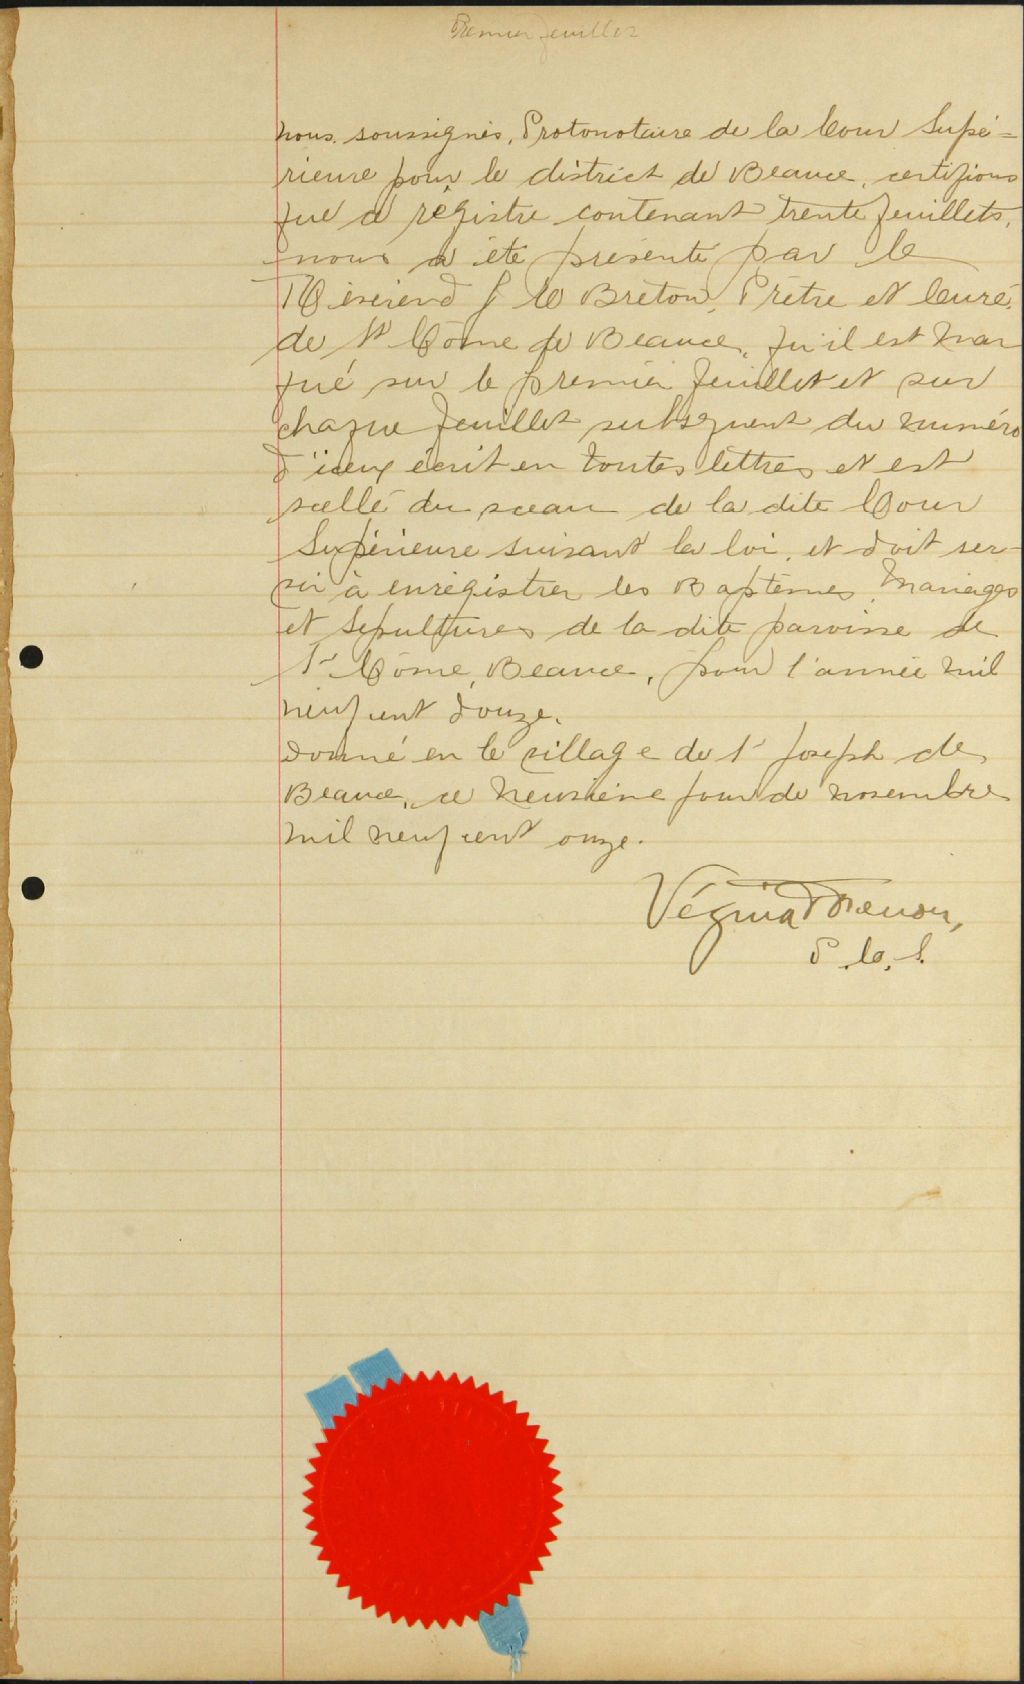 Premier feuillet
Nous, soussignés, Protonotaire de la Cour Supé=
rieure pour le district de Beauce, certifions
que ce registre contenant trente feuillets,
nous a été présenté par le
Révérend J Le Breton, Prêtre et Curé,
de St Côme de Beauce, qu'il est mar
qué sur le premier feuillet et sur
chaque feuillet subséquent du numéro
d'iceux écrit en toutes lettres et est
scellé du sceau de la dite Cour
Supérieure suivant la loi, et doit ser-
vir à enrégistrer les Baptèmes, Mariages
et Sépultures de la dite paroisse de
St Côme, Beauce, pour l'année mil
neuf cent douze.
Donné en le village de St Joseph de
Beauce, ce neuvième jour de novembre
mil neuf cent onze.
Vézina
P. C. S.